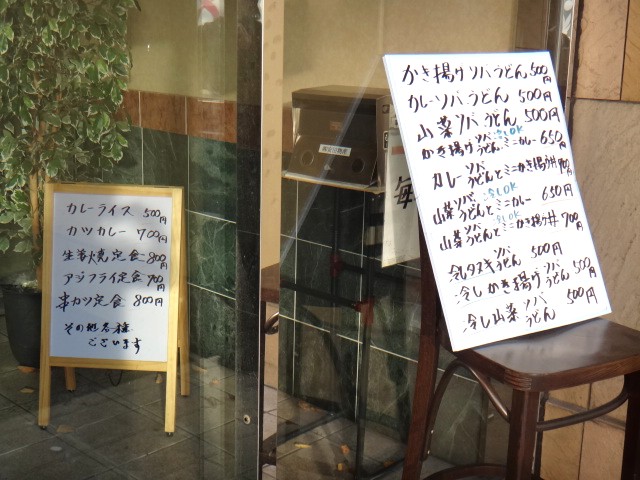 カレーライス 500円
カツカレー 700円
生姜焼定食 800円
アジフライ定食 700円
串カツ定食 800円
その他各種
ございます
かき揚げソバうどん 500円
カレーソバうどん 500円
山菜ソバうどん 500円
冷OK
かき揚げソバうどんミニカレー 650円
カレーソバうどんとミニかき揚げ丼 700円
冷OK
山菜ソバうどんとミニカレー 650円
冷OK
山菜ソバうどんとミニかき揚げ丼 700円
冷しタヌキソバうどん 500円
冷しかき揚げソバうどん 500円
冷し山菜ソバうどん 500円
毎